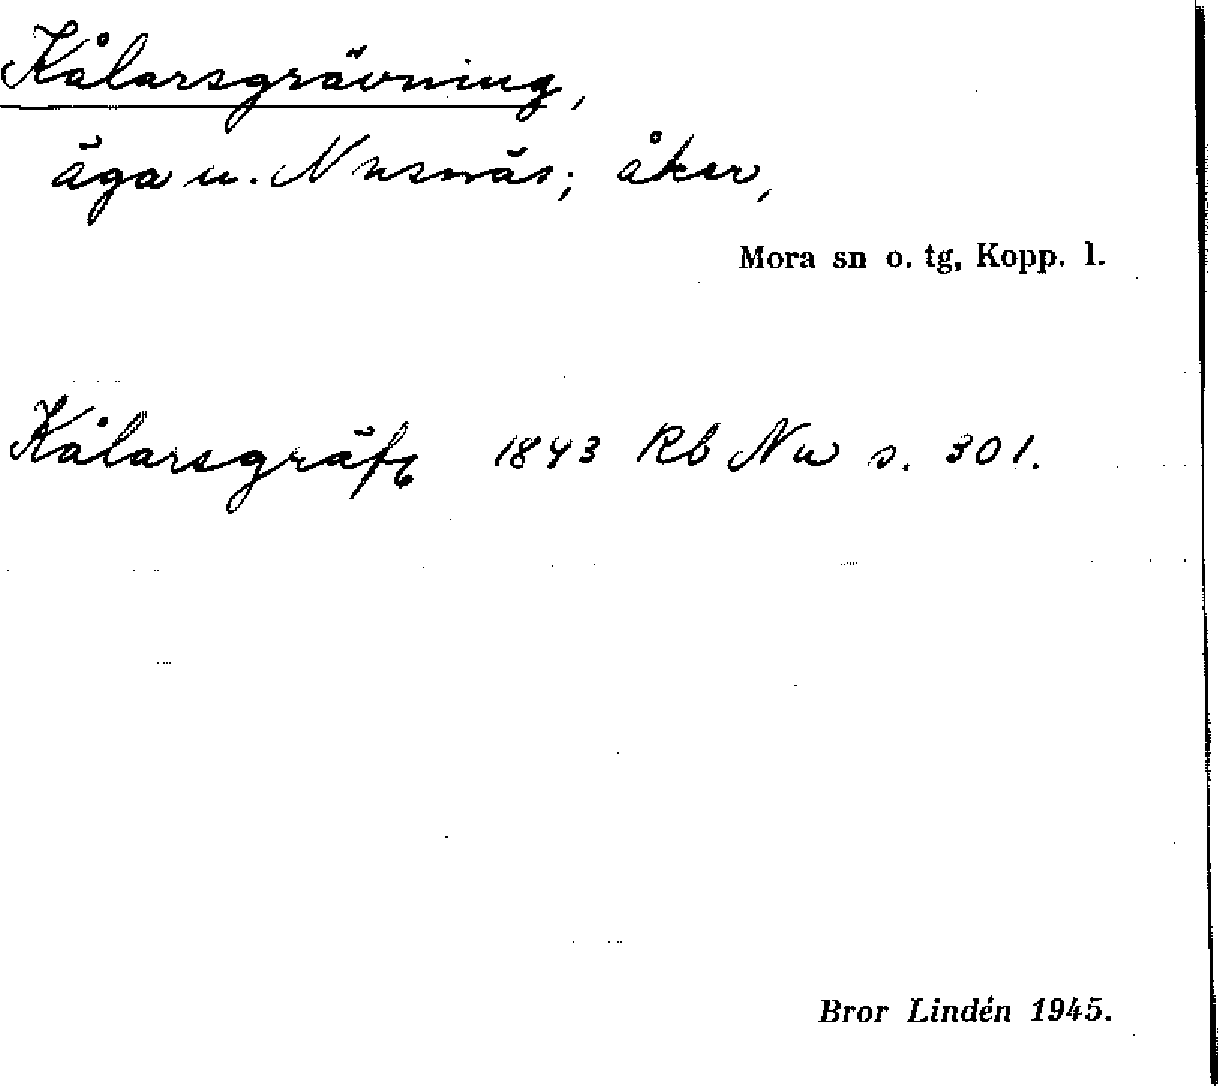 Kålarsgrävning,
äga u. Nusnäs; åker,
Mora sn o. tg, Kopp. l.
Kålarsgräfv 1843 Rb Nu s. 301.
Bror Lindén 1945.